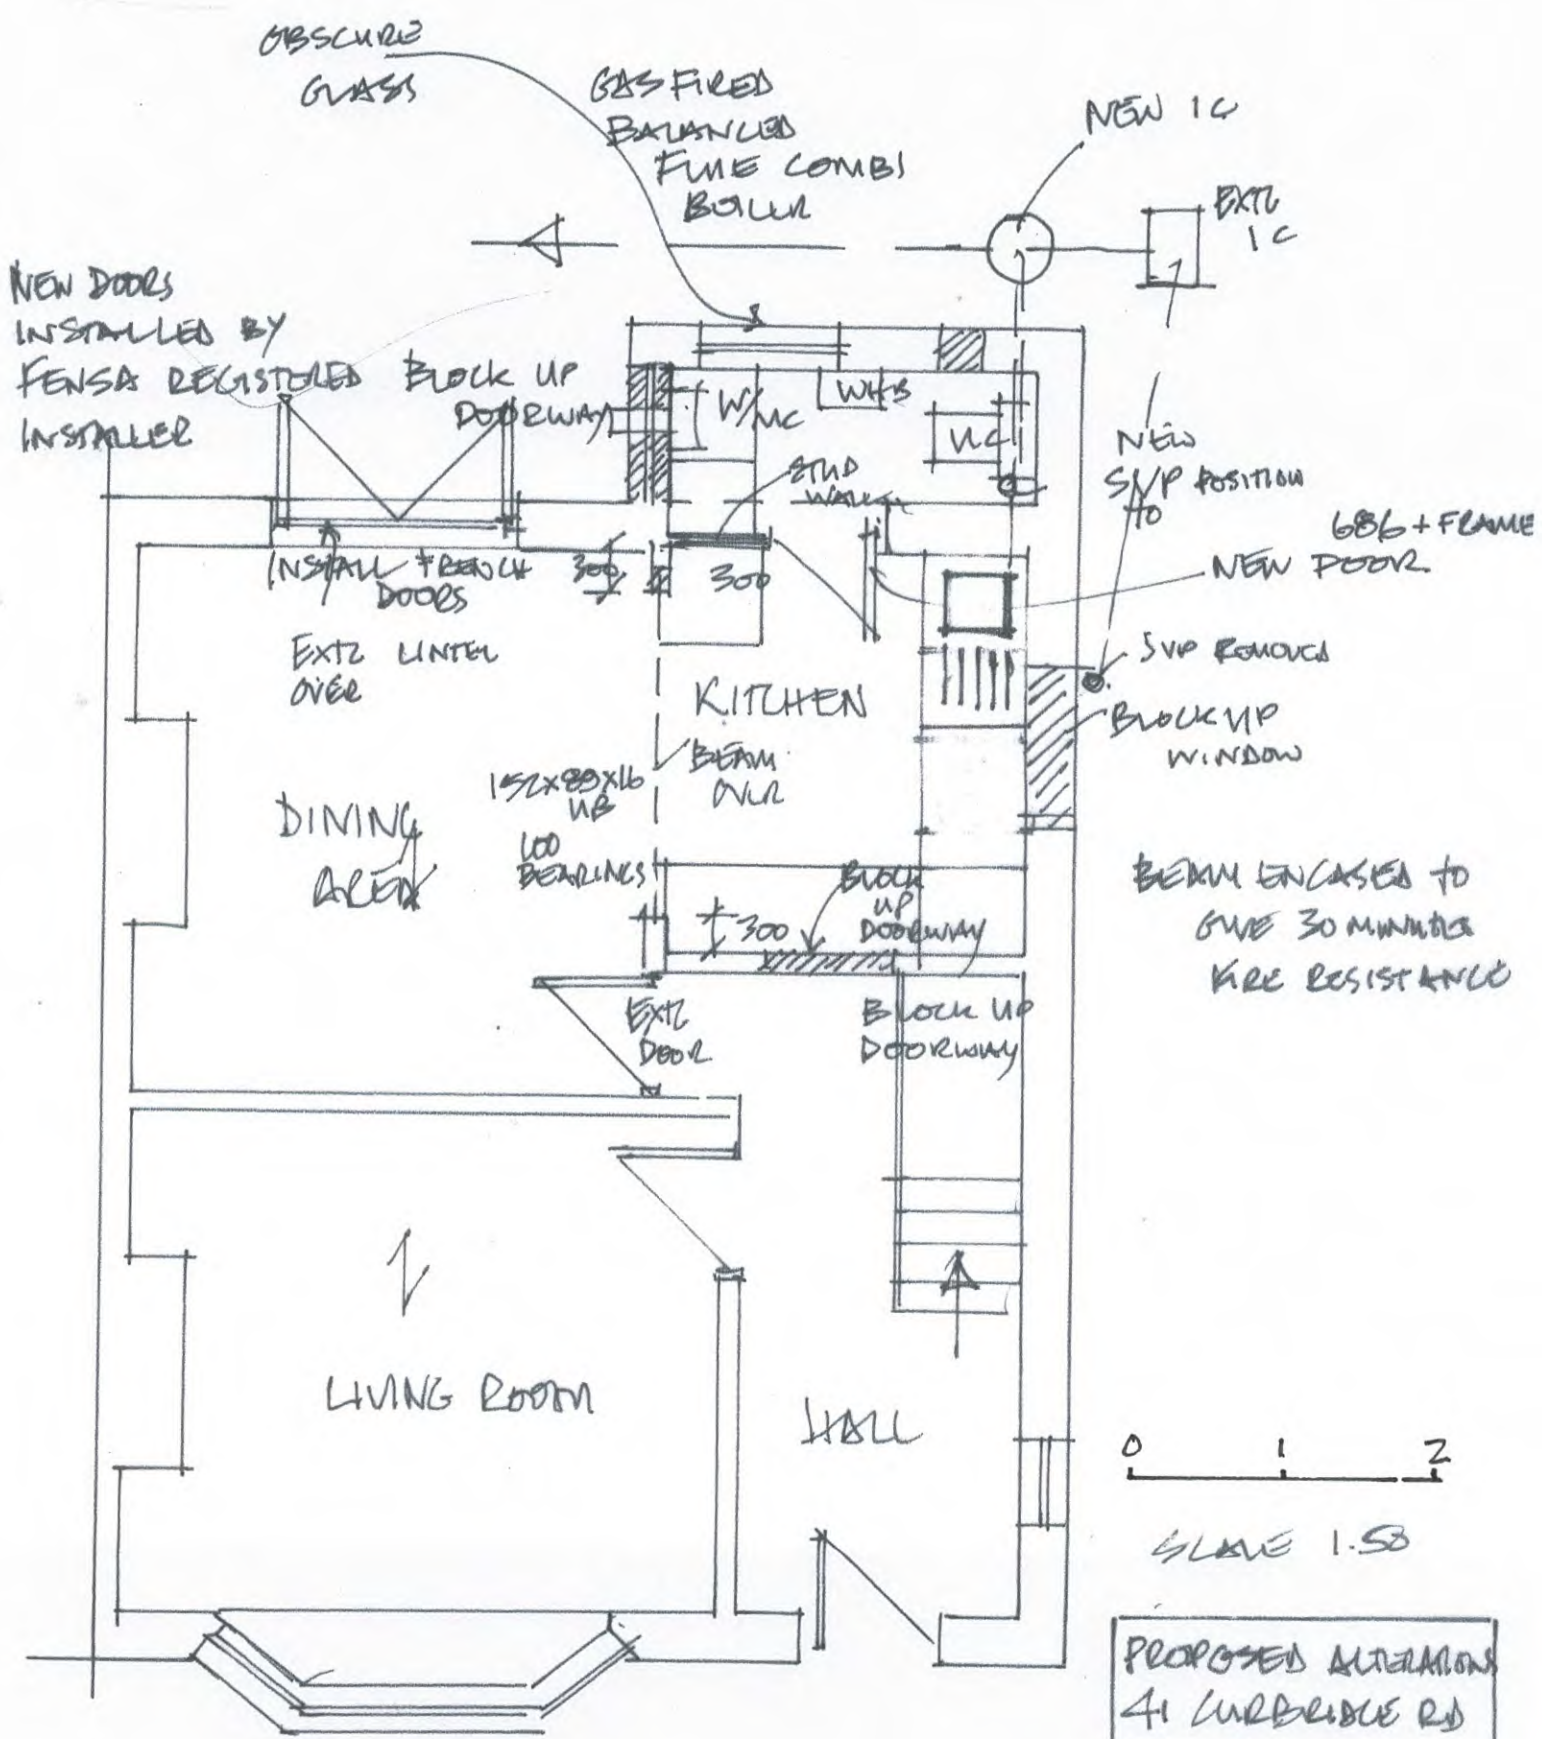 OBSCURE
GLASS
GAS FIRED
BALANCED
FLUE COMBI
BOILER
NEW IC
EXTG
IC
NEW DOORS
INSTALLED BY
FENSA REGISTERED
INSTALLER
BLOCK UP
DOORWAY
W/MC
WHB
WC
STUD
WALL
NEW
SVP POSITION
TO
686 + FRAME
NEW DOOR
INSTALL FRENCH
DOORS
300
300
EXTG LINTEL
OVER
SVP REMOVED
KITCHEN
BLOCK UP
WINDOW
BEAM
OVER
152x89x16
UB
100
BEARINGS
DINING
AREA
BLOCK
UP
DOORWAY
300
BEAM ENCASED TO
GIVE 30 MINUTES
FIRE RESISTANCE
EXTG
DOOR
BLOCK UP
DOORWAY
LIVING ROOM
HALL
0 1 2
SCALE 1.50
PROPOSED ALTERATIONS
41 CURBRIDGE RD